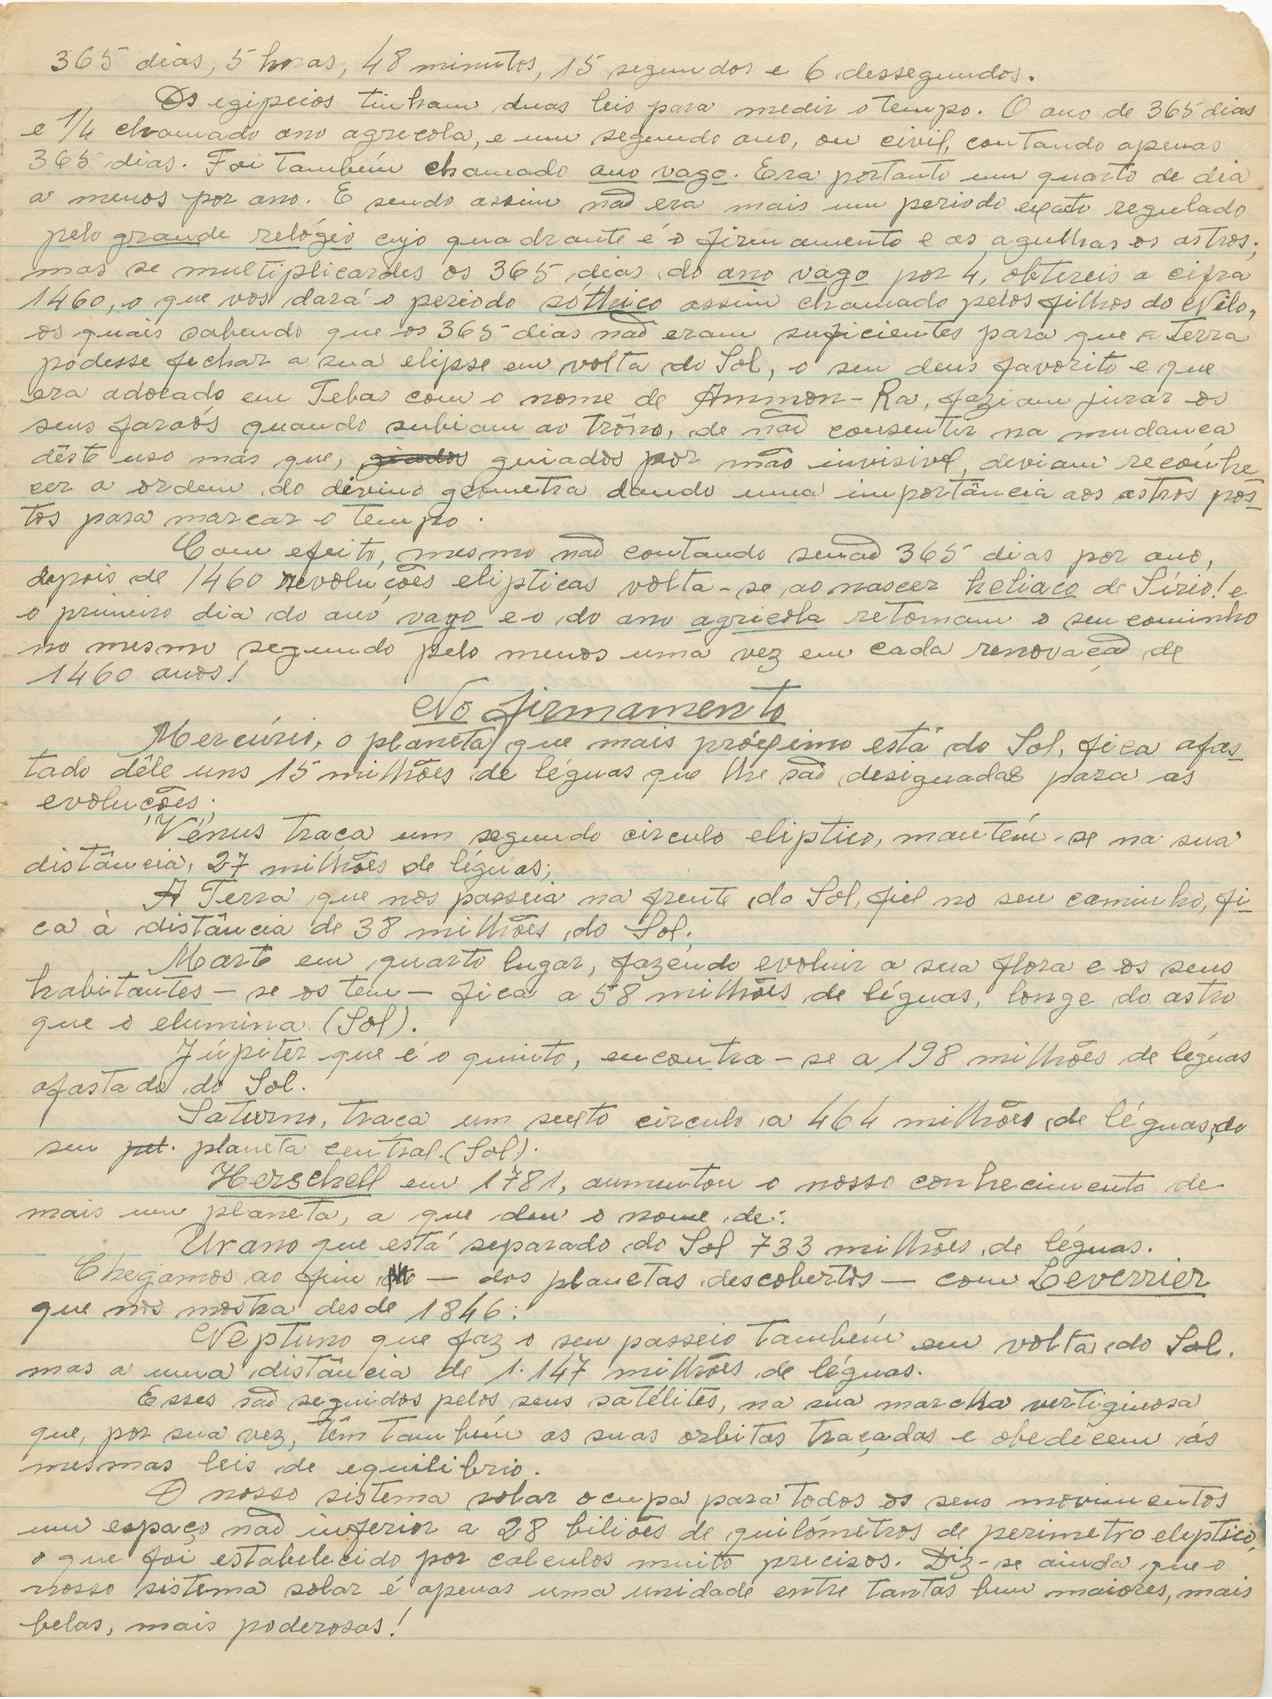 365 dias, 5 horas, 48 minutos, 15 segundos e 6 dessegundos.
Os egipcios tinham duas leis para medir o tempo. O ano de 365 dias
e 1/4 chamado ano agricola, e um segundo ano, ou civil, contando apenas
365 dias. Foi também chamado ano vago. Era portanto um quarto de dia
a menos por ano. E sendo assim não era mais um periodo exato regulado
pelo grande relógio cujo quadrante é o firmamento e as agulhas os astros;
mas se multiplicardes os 365 dias do ano vago por 4, obtereis a cifra
1460, o que vos dará o periodo sóthico assim chamado pelos filhos do Nilo,
os quais sabendo que os 365 dias não eram suficientes para que a terra
podesse fechar a sua elipse em volta do Sol, o seu deus favorito e que
era adorado em Tebas com o nome de Ammon-Ra, faziam jurar os
seus faraós quando subiam ao trôno, de não consentir na mudança
dêste uso mas que, guiados por mão invisivel, deviam reconhe
cer a ordem do divino geometra dando uma importância aos astros pos-
tos para marcar o tempo.
Com efeito, mesmo não contando senão 365 dias por ano,
depois de 1460 revoluções elipticas volta-se ao nascer heliaco de Sírio! e
o primeiro dia do ano vago e o do ano agricola retomam o seu caminho
no mesmo segundo pelo menos uma vez em cada renovação de
1460 anos!
No firmamento
Mercúrio, o planeta que mais próximo está do Sol, fica afas-
tado dêle uns 15 milhões de léguas que lhe são designadas para as
evoluções;
Vénus traça um segundo circulo eliptico, mantém-se na sua
distância, 27 milhões de léguas;
A Terra que nos passeia na frente do Sol, fiel no seu caminho, fi-
ca à distância de 38 milhões do Sol;
Marte em quarto lugar, fazendo evoluir a sua flora e os seus
habitantes - se os tem - fica a 58 milhões de léguas, longe do astro
que o elumina (Sol).
Júpiter que é o quinto, encontra-se a 198 milhões de léguas
afastado do Sol.
Saturno, traça um sexto circulo a 464 milhões de léguas do
seu planeta central (Sol).
Herschell em 1781, aumentou o nosso conhecimento de
mais um planeta, a que deu o nome de:
Urano que está separado do Sol 733 milhões de léguas.
Chegamos ao fim - dos planetas descobertos - com Leverrier
que nos mostra desde 1846:
Neptuno que faz o seu passeio também em volta do Sol.
mas a uma distância de 1.147 milhões de léguas.
Esses são seguidos pelos seus satélites, na sua marcha vertiginosa
que, por sua vez, têm também as suas orbitas traçadas e obedecem ás
mesmas leis de equilibrio.
O nosso sistema solar ocupa para todos os seus movimentos
um espaço não inferior a 28 biliões de quilómetros de perimetro eliptico,
o que foi estabelecido por calculos muito precisos. Diz-se ainda que o
nosso sistema solar é apenas uma unidade entre tantas bem maiores, mais
belas, mais poderosas!